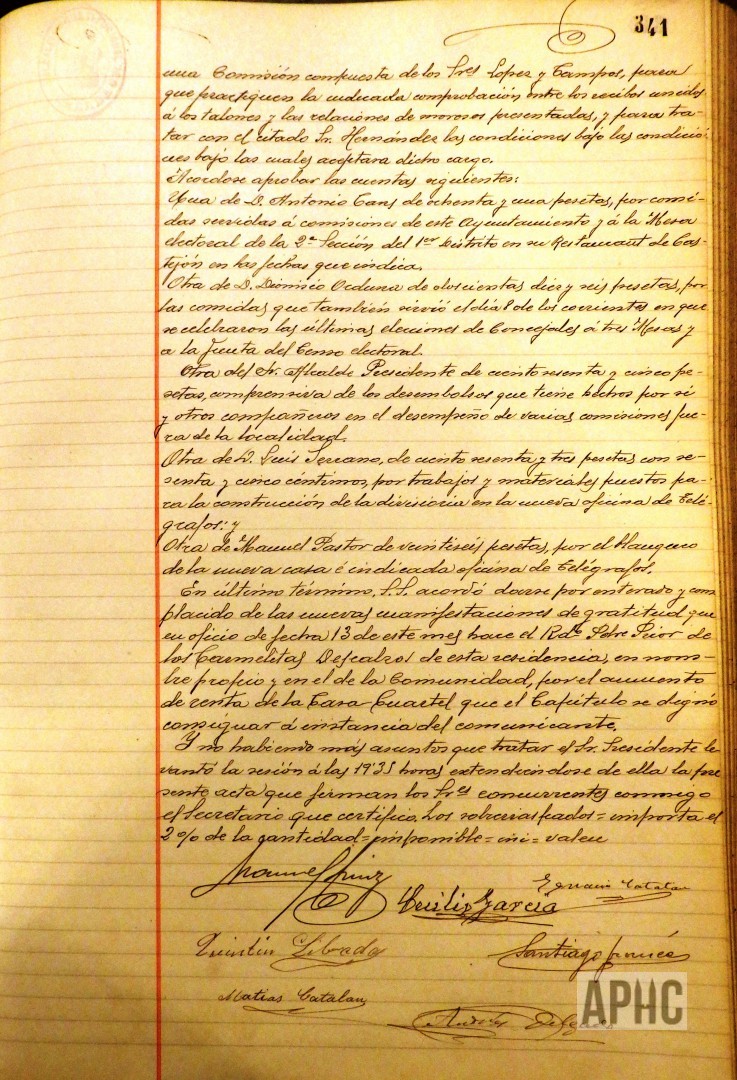 341
una Comisión compuesta de los Sres Lopez y Campos, para
que practiquen la indicada comprobación entre los recibos unidos
á los talones y las relaciones de morosos presentadas, y para tra-
tar con el citado Sr. Hernández las condiciones bajo las condicio-
nes bajo las cuales aceptara dicho cargo.
Acordose aprobar las cuentas siguientes:
Una de D. Antonio Cans de ochenta y una pesetas, por comi-
das servidas á comisiones de este Ayuntamiento y á la Mesa
electoral de la 2ª Sección del 1er Distrito en su Restaurant de Cas-
tejón en las fechas que indica.
Otra de D. Dionisio Orduna de doscientas diez y seis pesetas, por
las comidas que también sirvió el día 8 de los corrientes en que
se celebraron las últimas elecciones de Concejales á tres Mesas y
a la Junta del Censo electoral.
Otra del Sr. Alcalde Presidente de ciento sesenta y cinco pe-
setas, comprensiva de los desembolsos que tiene hechos por si
y otros compañeros en el desempeño de varias comisiones fue-
ra de la localidad.
Otra de D. Luis Serrano, de ciento sesenta y tres pesetas con se-
senta y cinco céntimos, por trabajos y materiales puestos pa-
ra la construcción de la divisoria en la nueva oficina de Telé-
grafos: y
Otra de Manuel Pastor de veintiseis pesetas, por el blanqueo
de la nueva casa é indicada oficina de Telégrafos.
En último término, S.S. acordó darse por enterado y com-
placido de las nuevas manifestaciones de gratitud que
en oficio de fecha 13 de este mes hace el Rdo Pdre Prior de
los Carmelitas Descalzos de esta residencia, en nom-
bre propio y en el de la Comunidad, por el aumento
de renta de la Casa-Cuartel que el Capítulo se dignó
consignar á instancia del comunicante.
Y no habiendo más asuntos que tratar el Sr. Presidente le-
vantó la sesión á las 19'35 horas extendiendose de ella la pre-
sente acta que firman los Sres concurrentes conmigo
el Secretario que certifico. Los sobrerraspados = importa el
2% de la cantidad = imponible = ini = valen
Manuel
García
Catalan
Quintin Librada
Santiago
Matias Catalan
APHC